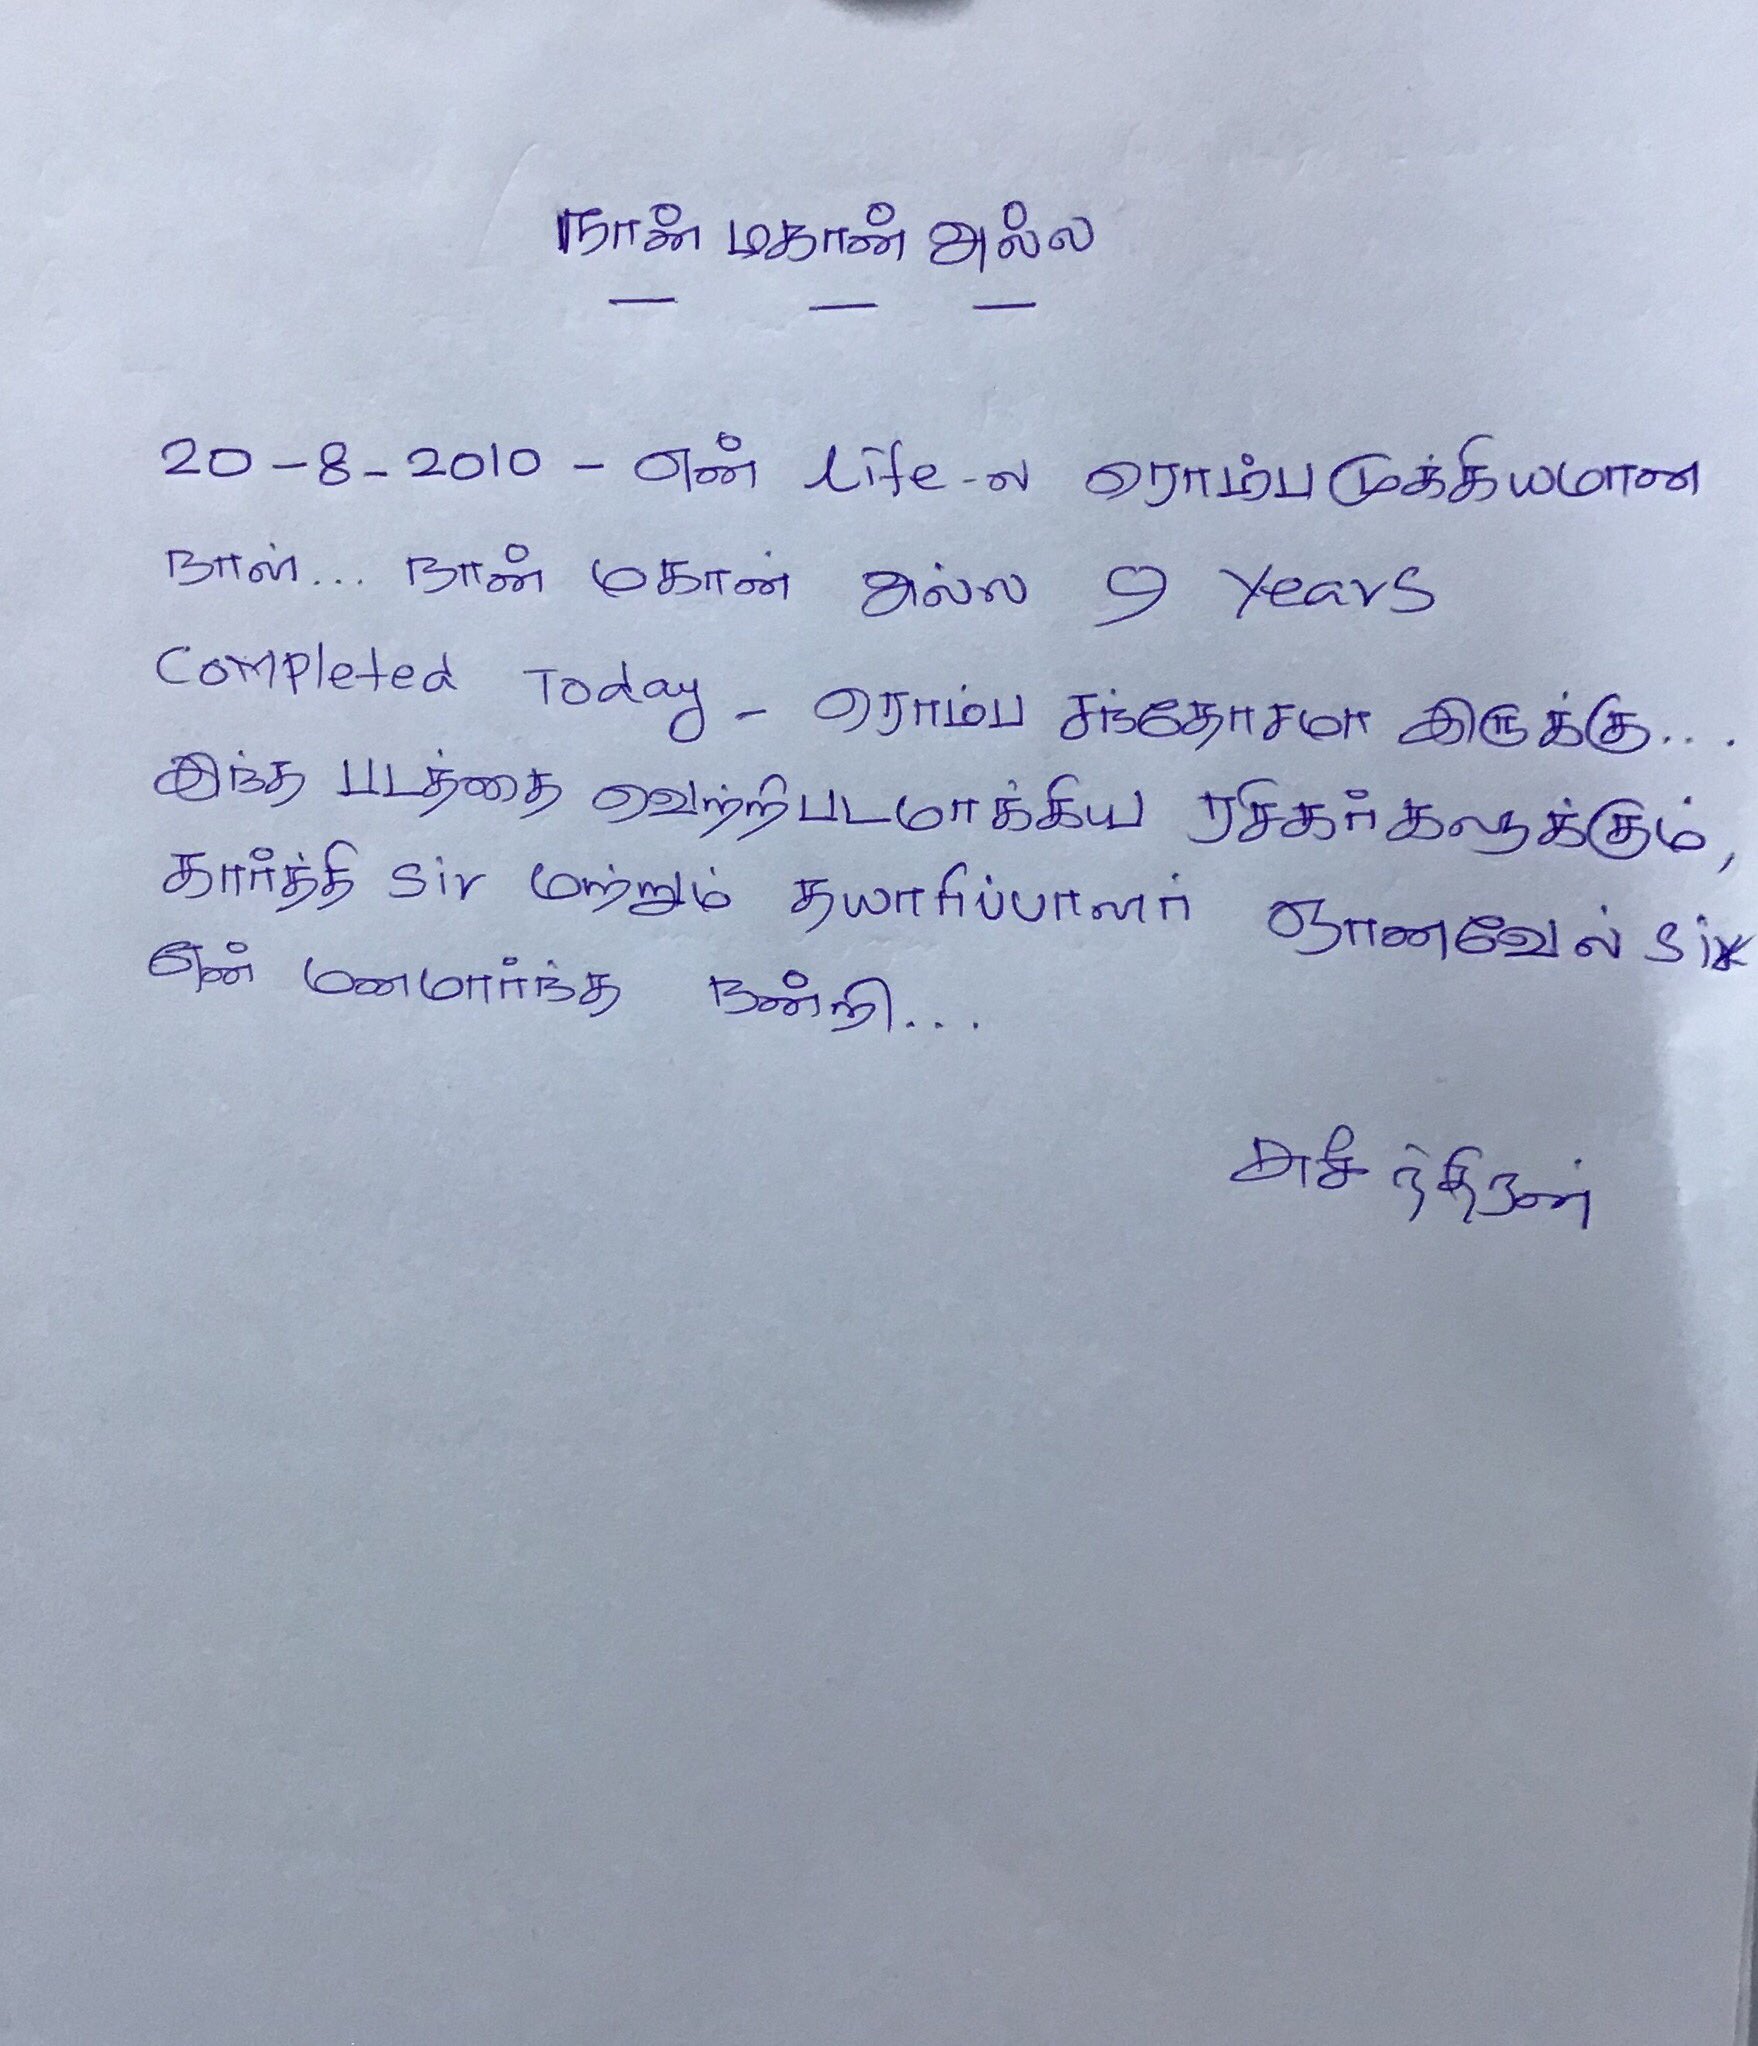 நான் மகான் அல்ல
20-8-2010 - என் life-ல ரொம்ப முக்கியமான
நாள்... நான் மகான் அல்ல 9 Years
Completed Today - ரொம்ப சந்தோசமா இருக்கு...
இந்த படத்தை வெற்றிபடமாக்கிய ரசிகர்களுக்கும்,
கார்த்தி Sir மற்றும் தயாரிப்பாளர் ஞானவேல் Sir
என் மனமார்ந்த நன்றி...
சுசீந்திரன்